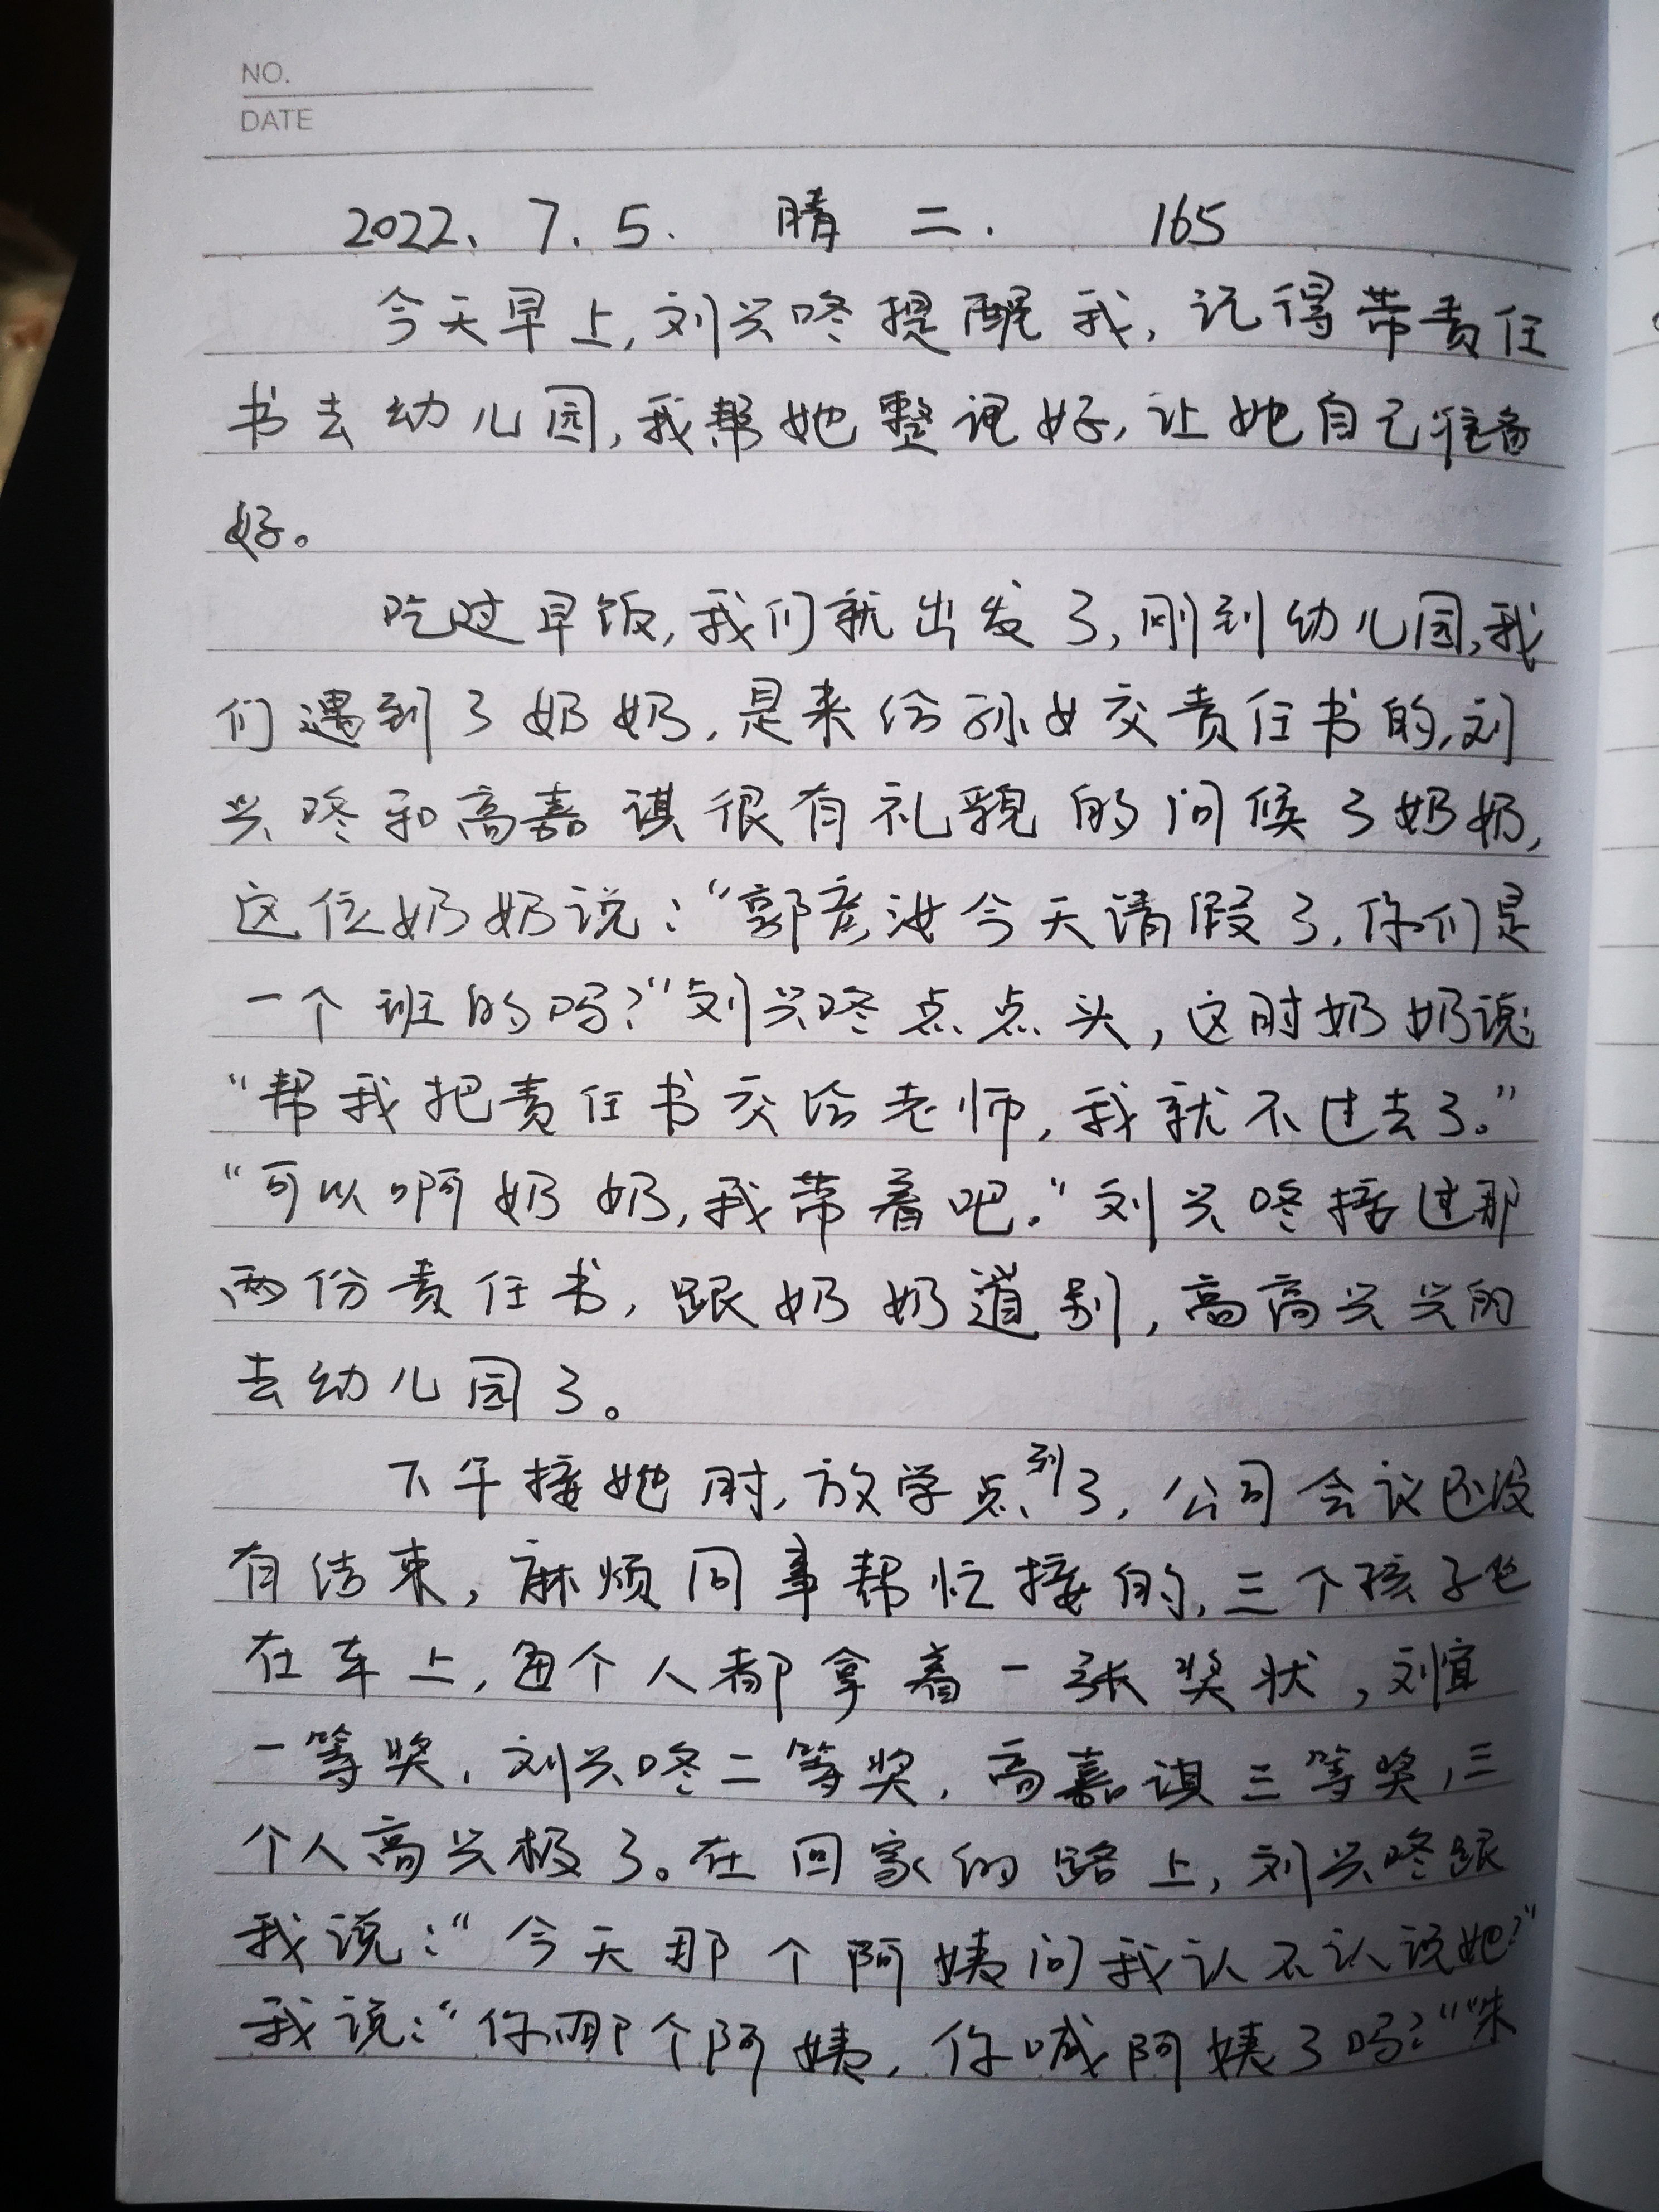 NO.
DATE
2022、7.5. 晴 二. 165
今天早上,刘兴咚提醒我,记得带责任
书去幼儿园,我帮她整理好,让她自己准备
好。
吃过早饭,我们就出发了,刚到幼儿园,我
们遇到了奶奶,是来给孙女交责任书的,刘
兴咚和高嘉谋很有礼貌的问候了奶奶,
这位奶奶说:“郭彦汝今天请假了,你们是
一个班的吗?”刘兴咚点点头,这时奶奶说:
“帮我把责任书交给老师,我就不过去了。”
“可以啊奶奶,我带着吧.”刘兴咚接过那
两份责任书,跟奶奶道别,高高兴兴的
去幼儿园了。
下午接她时,放学点到了,公司会议还没
有结束,麻烦同事帮忙接的,三个孩子坐
在车上,每个人都拿着一张奖状,刘宜
一等奖,刘兴咚二等奖,高嘉谋三等奖,三
个人高兴极了。在回家的路上,刘兴咚跟
我说:“今天那个阿姨问我认不认识她?”
我说:“你哪个阿姨,你喊阿姨了吗?”“朱